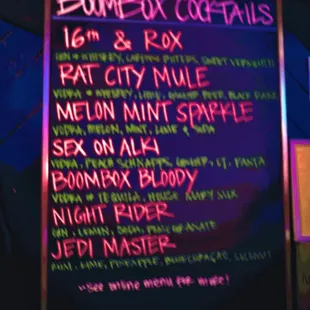 BOOMBOX COCKTAILS
16th & ROX
GIN * WHISKEY, CAMPARI BITTERS, SWEET VERMOUTH
RAT CITY MULE
VODKA * WHISKEY, LIME, GINGER BEER,
MELON MINT SPARKLE
VODKA, MELON, MINT, LIME & SODA
SEX ON ALKI
VODKA, PEACH SCHNAPPS, FANTA
BOOMBOX BLOODY
VODKA * TEQUILA, HOUSE MARY
NIGHT RIDER
GIN, LEMON, SODA, POMEGRANATE
JEDI MASTER
RUM, LIME, PINEAPPLE, BLUE CURAÇAO, COCONUT
~see online menu for more!